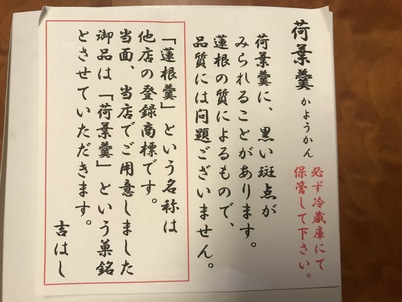 荷葉羹 かようかん
必ず冷蔵庫にて
保管して下さい。
荷葉羹に、黒い斑点が
みられることがあります。
蓮根の質によるもので、
品質には問題ございません。
「蓮根羹」という名称は
他店の登録商標です。
当面、当店でご用意しました
御品は「荷葉羹」という菓銘
とさせていただきます。
吉はし